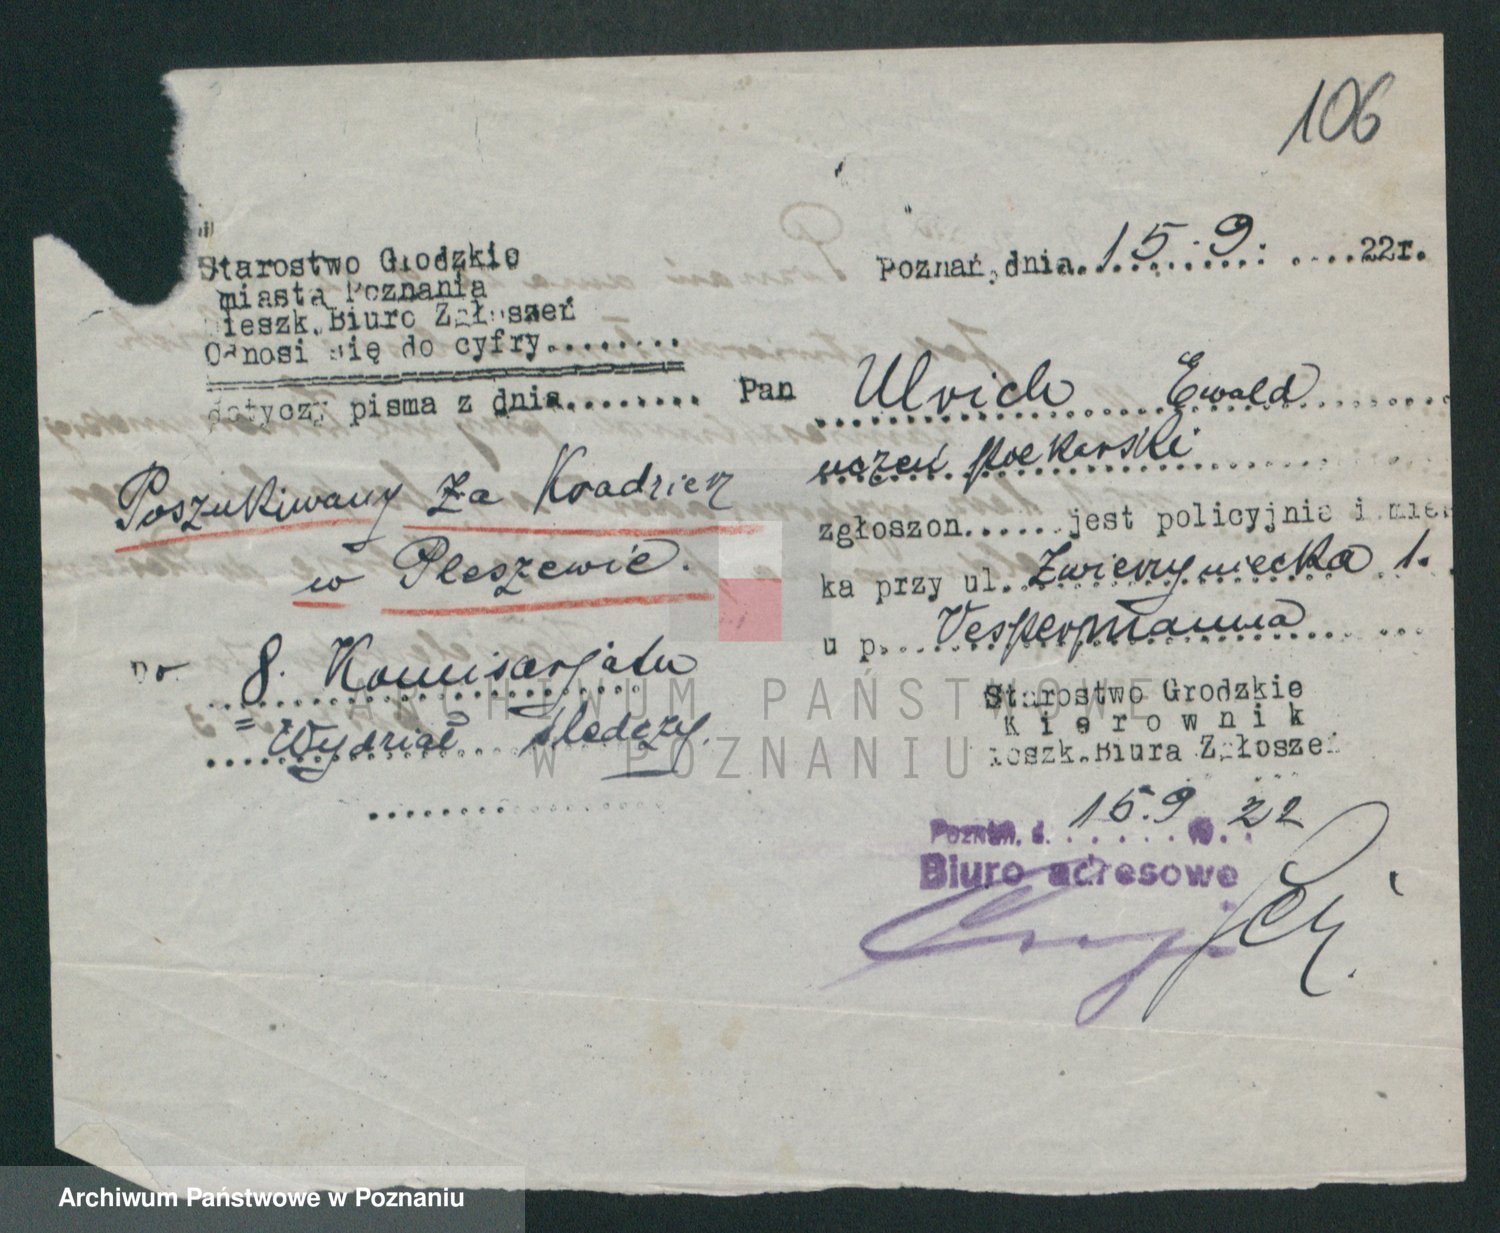 106
Starostwo Grodzkie
miasta Poznania
Mieszk.Biuro Zgłoszeń
Odnosi się do cyfry.........
dotyczy pisma z dnia.........
Poznań, dnia 15.9. 22r.
Pan Ulrich Ewald
uczeń piekarski
zgłoszon...... jest policyjnie i miesz
ka przy ul. Zwierzyniecka 1.
u p. Vespermanna
Poszukiwany za Kradzież
w Pleszewie.
Do
8. Komisarjatu
= Wydział śledczy.
Starostwo Grodzkie
Kierownik
Mieszk.Biura Zgłoszeń
Poznań, d. 15.9 22
Biuro adresowe
ARCHIWUM PAŃSTWOWE
W POZNANIU
Archiwum Państwowe w Poznaniu